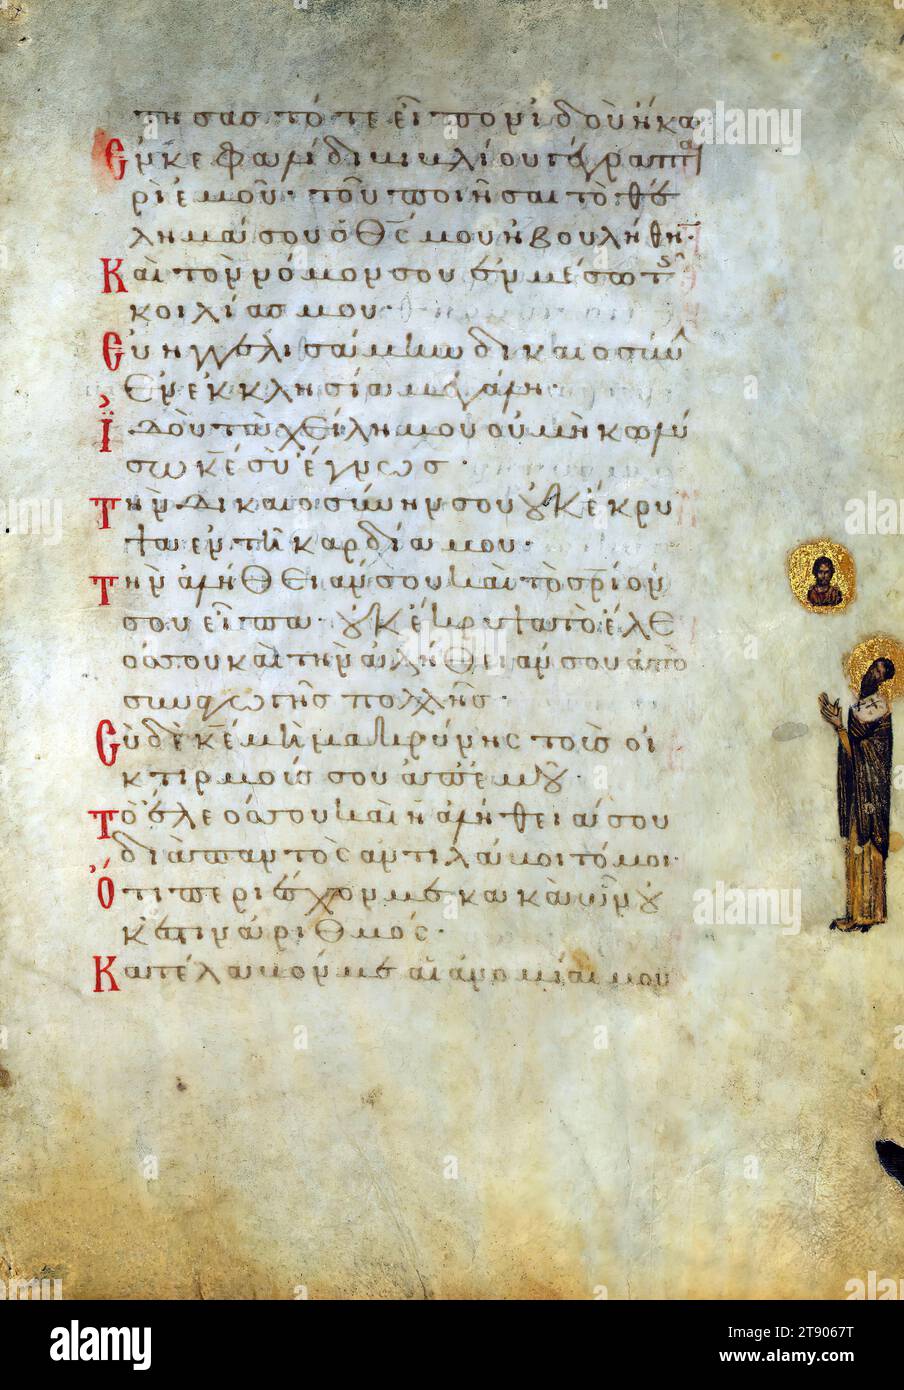 τησασ τότε εἶπον ἰδοὺ ἥκω
Ἐν κεφαλίδι βιβλίου γέγραπται
περὶ ἐμοῦ· τοῦ ποιῆσαι τὸ θέ
λημά σου ὁ Θς μου ἠβουλήθην·
Καὶ τὸν νόμον σου ἐν μέσω τῆς
κοιλίας μου·
Εὐηγγελισάμην δικαιοσύνην
Ἐν ἐκκλησία μεγάλη·
Ἰδοὺ τὰ χείλη μου οὐ μὴ κωλύ
σω κε σὺ ἔγνως·
Τὴν δικαιοσύνην σου οὐκ ἔκρυ
ψα ἐν τῆ καρδία μου·
Τὴν ἀλήθειάν σου καὶ τὸ σριόν
σου εἶπα· οὐκ ἔκρυψα τὸ ἔλε
όσ σου καὶ τὴν ἀλήθειάν σου ἀπὸ
συναγωγῆς πολλῆς·
Σὺ δὲ κε μὴ μακρύνης τοὺς οἰ
κτιρμούς σου ἀπ ἐμοῦ·
Τὸ ἔλεός σου καὶ ἡ ἀλήθειά σου
διαπαντὸς ἀντιλάβοιτό μου·
Ὅτι περιέσχον με κακὰ ὧν οὐ
κ ἔστιν ἀριθμός·
Κατέλαβόν με αἱ ἀνομίαι μου
alamy
Image ID: 2T9067T
www.alamy.com